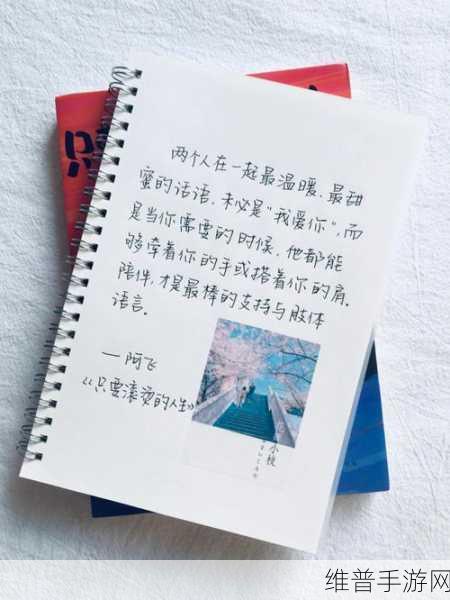 两个人在一起最温暖、最甜
蜜的话语,未必是“我爱你”,而
是当你需要的时候,他都能
够牵着你的手或搭着你的肩。
陪伴,才是最棒的支持与肢体
语言。
——阿飞
《只要滚烫的人生》
小校
维普手游网